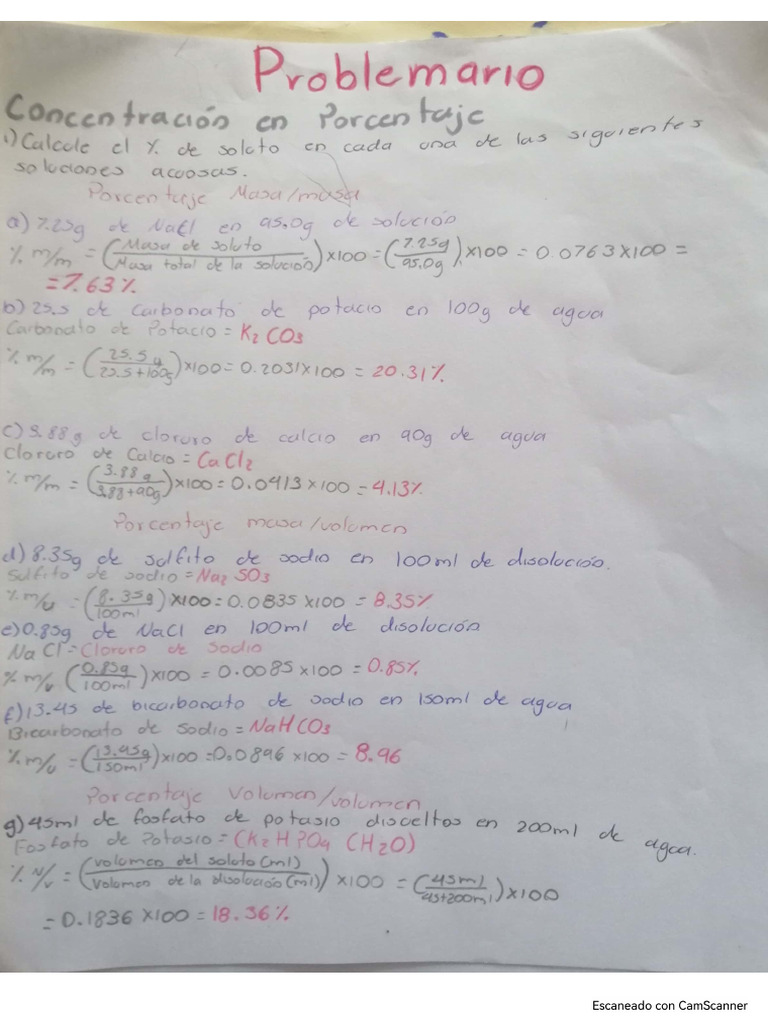 Problemario
Concentración en Porcentaje
1) Calcule el % de soloto en cada una de las siguientes
soluciones acuosas.
Porcentaje Masa/masa
a) 7.25g de NaCl en 95.0g de solución
% m/m = (Masa de soluto / Masa total de la solución) x100 = (7.25g / 95.0g) x100 = 0.0763x100 =
= 7.63%
b) 25.5 de carbonato de potacio en 100g de agua
Carbonato de Potacio = K2 CO3
% m/m = (25.5g / 25.5+100g) x100 = 0.2031x100 = 20.31%
c) 3.88g de cloruro de calcio en 90g de agua
Cloruro de Calcio = CaCl2
% m/m = (3.88g / 3.88+90g) x100 = 0.0413x100 = 4.13%
Porcentaje masa/volumen
d) 8.35g de sulfito de sodio en 100ml de disolución.
Sulfito de sodio = Na2 SO3
% m/v = (8.35g / 100ml) x100 = 0.0835 x100 = 8.35%
e) 0.85g de NaCl en 100ml de disolución
NaCl = Cloruro de Sodio
% m/v (0.85g / 100ml) x100 = 0.0085 x100 = 0.85%
f) 13.45 de bicarbonato de sodio en 150ml de agua
Bicarbonato de Sodio = NaHCO3
% m/v = (13.45g / 150ml) x100 = 0.0896 x100 = 8.96
Porcentaje Volumen/volumen
g) 45ml de fosfato de potasio disceltos en 200ml de agua.
Fosfato de Potasio = (K2HPO4 (H2O)
% v/v = (volumen del soloto (ml) / Volumen de la disolución (ml)) x100 = (45ml / 45+200ml) x100
= 0.1836 x100 = 18.36%
Escaneado con CamScanner